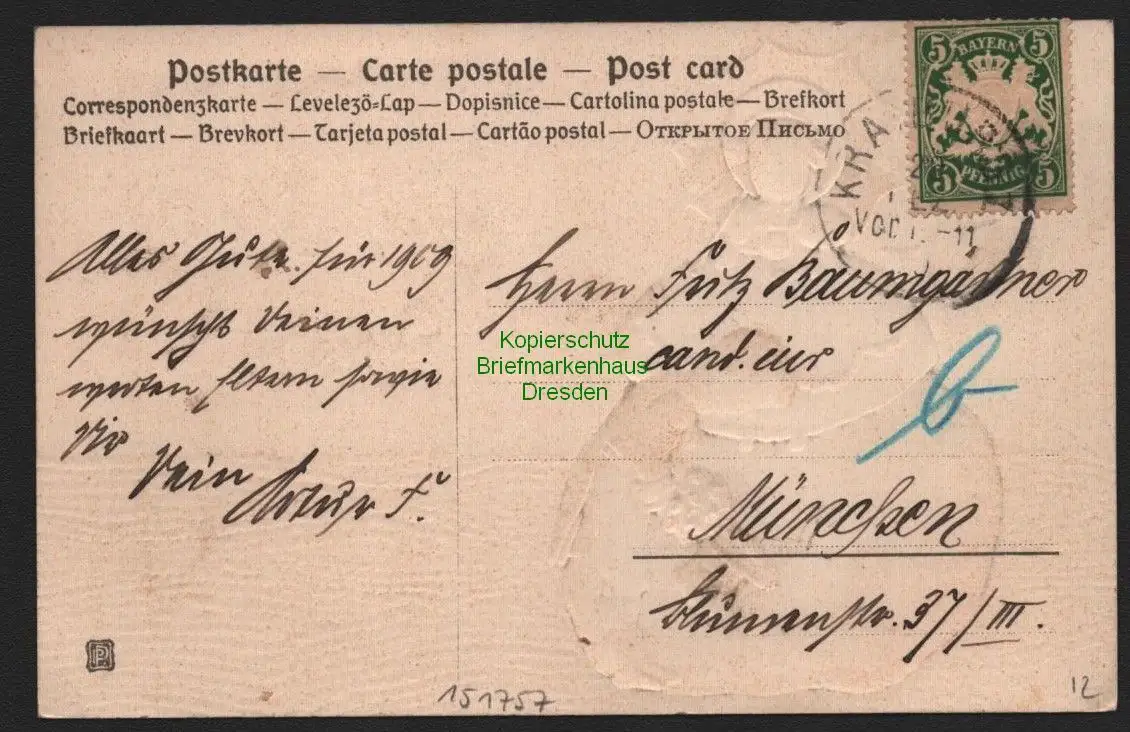 Postkarte — Carte postale — Post card
Correspondenzkarte — Levelező-Lap — Dopisnice — Cartolina postale — Brefkort
Briefkaart — Brevkort — Tarjeta postal — Cartão postal — Открытое Письмо
5 BAYERN 5
5 PFENNIG 5
KRA
VOR 11
Alles Gute für 1909
wünscht Deinen
werten Eltern sowie
Dir
Dein Artur F.
Herrn Fritz Baumgartner
cand. iur
b
München
Blumenstr. 37/III.
Kopierschutz
Briefmarkenhaus
Dresden
151757
12